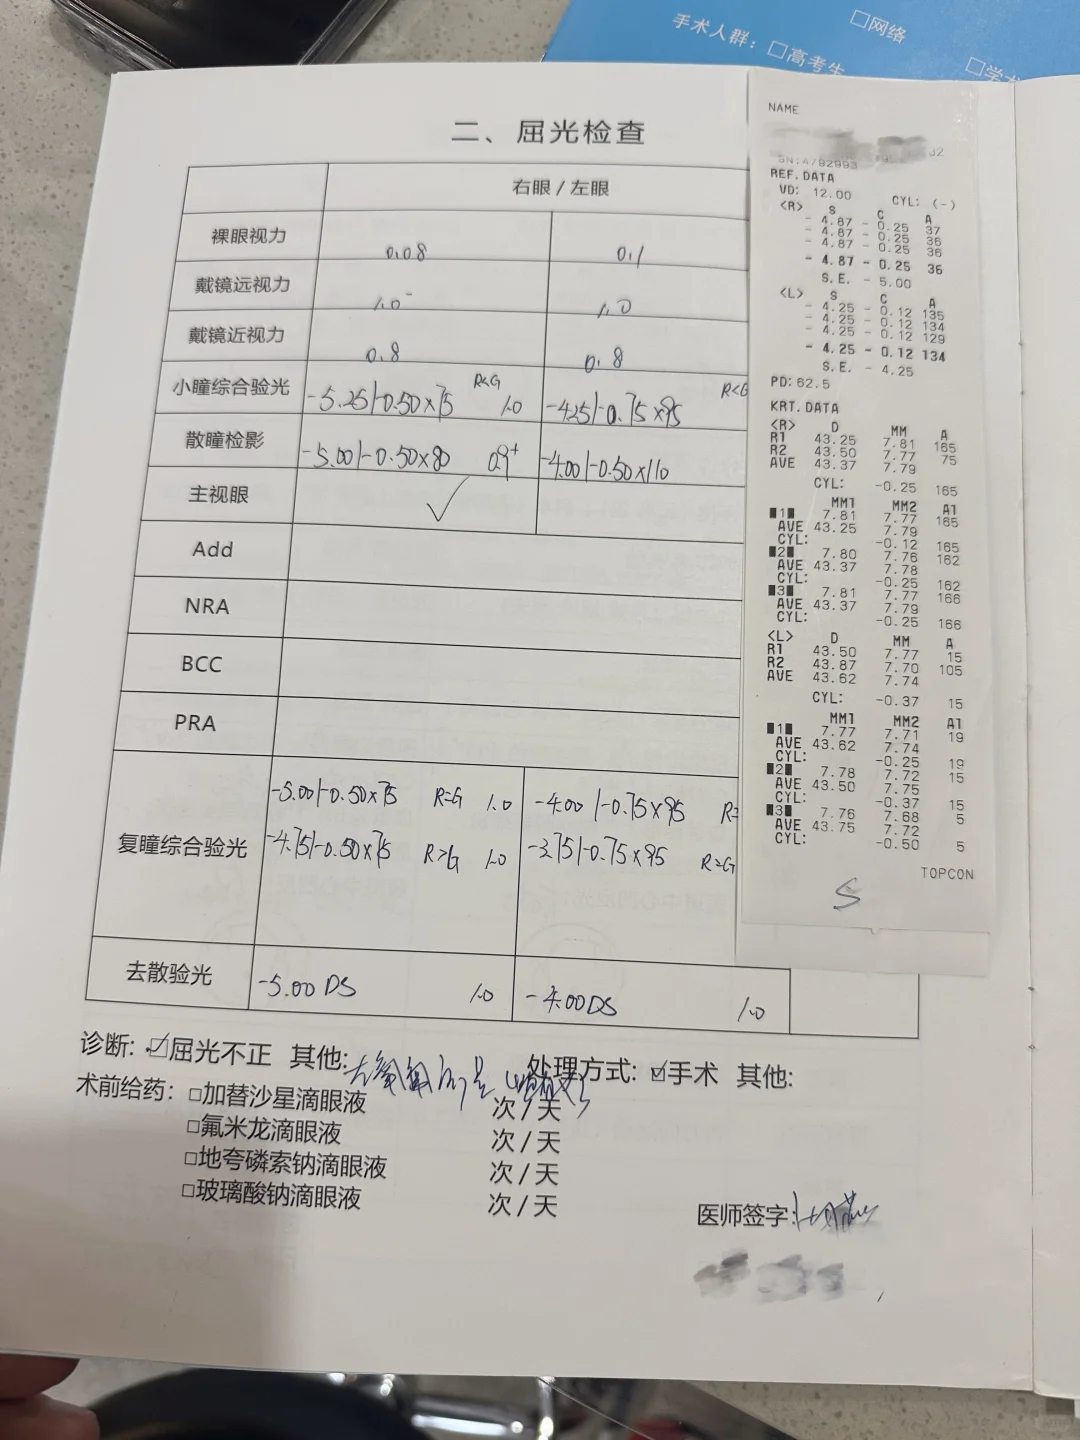 手术人群: □高考生
□网络
二、屈光检查
右眼 / 左眼
裸眼视力 0.08 0.1
戴镜远视力 1.0⁻ 1.0
戴镜近视力 0.8 0.8
小瞳综合验光 -5.25/-0.50×75 R<G 1.0 -4.25/-0.75×95 R<G
散瞳检影 -5.00/-0.50×80 0.9⁺ -4.00/-0.50×110
主视眼 ✓
Add
NRA
BCC
PRA
复瞳综合验光 -5.00/-0.50×75 R=G 1.0 -4.00/-0.75×95 R=
-4.75/-0.50×75 R>G 1.0 -3.75/-0.75×95 R>G
去散验光 -5.00 DS 1.0 -4.00DS 1.0
诊断: ☑屈光不正 其他: 处理方式: ☑手术 其他:
术前给药: □加替沙星滴眼液 次/天
□氟米龙滴眼液 次/天
□地夸磷索钠滴眼液 次/天
□玻璃酸钠滴眼液 次/天
医师签字:
NAME
SN:4792993
REF.DATA
VD: 12.00 CYL: (-)
<R> S C A
- 4.87 - 0.25 37
- 4.87 - 0.25 36
- 4.87 - 0.25 36
- 4.87 - 0.25 36
S.E. - 5.00
<L> S C A
- 4.25 - 0.12 135
- 4.25 - 0.12 134
- 4.25 - 0.12 129
- 4.25 - 0.12 134
S.E. - 4.25
PD: 62.5
KRT.DATA
<R> D MM A
R1 43.25 7.81 165
R2 43.50 7.77 75
AVE 43.37 7.79
CYL: -0.25 165
MM1 MM2 A1
1 7.81 7.77 165
AVE 43.25 7.79
CYL: -0.12 165
2 7.80 7.76 162
AVE 43.37 7.78
CYL: -0.25 162
3 7.81 7.77 166
AVE 43.37 7.79
CYL: -0.25 166
<L> D MM A
R1 43.50 7.77 15
R2 43.87 7.70 105
AVE 43.62 7.74
CYL: -0.37 15
MM1 MM2 A1
1 7.77 7.71 19
AVE 43.62 7.74
CYL: -0.25 19
2 7.78 7.72 15
AVE 43.50 7.75
CYL: -0.37 15
3 7.76 7.68 5
AVE 43.75 7.72
CYL: -0.50 5
TOPCON